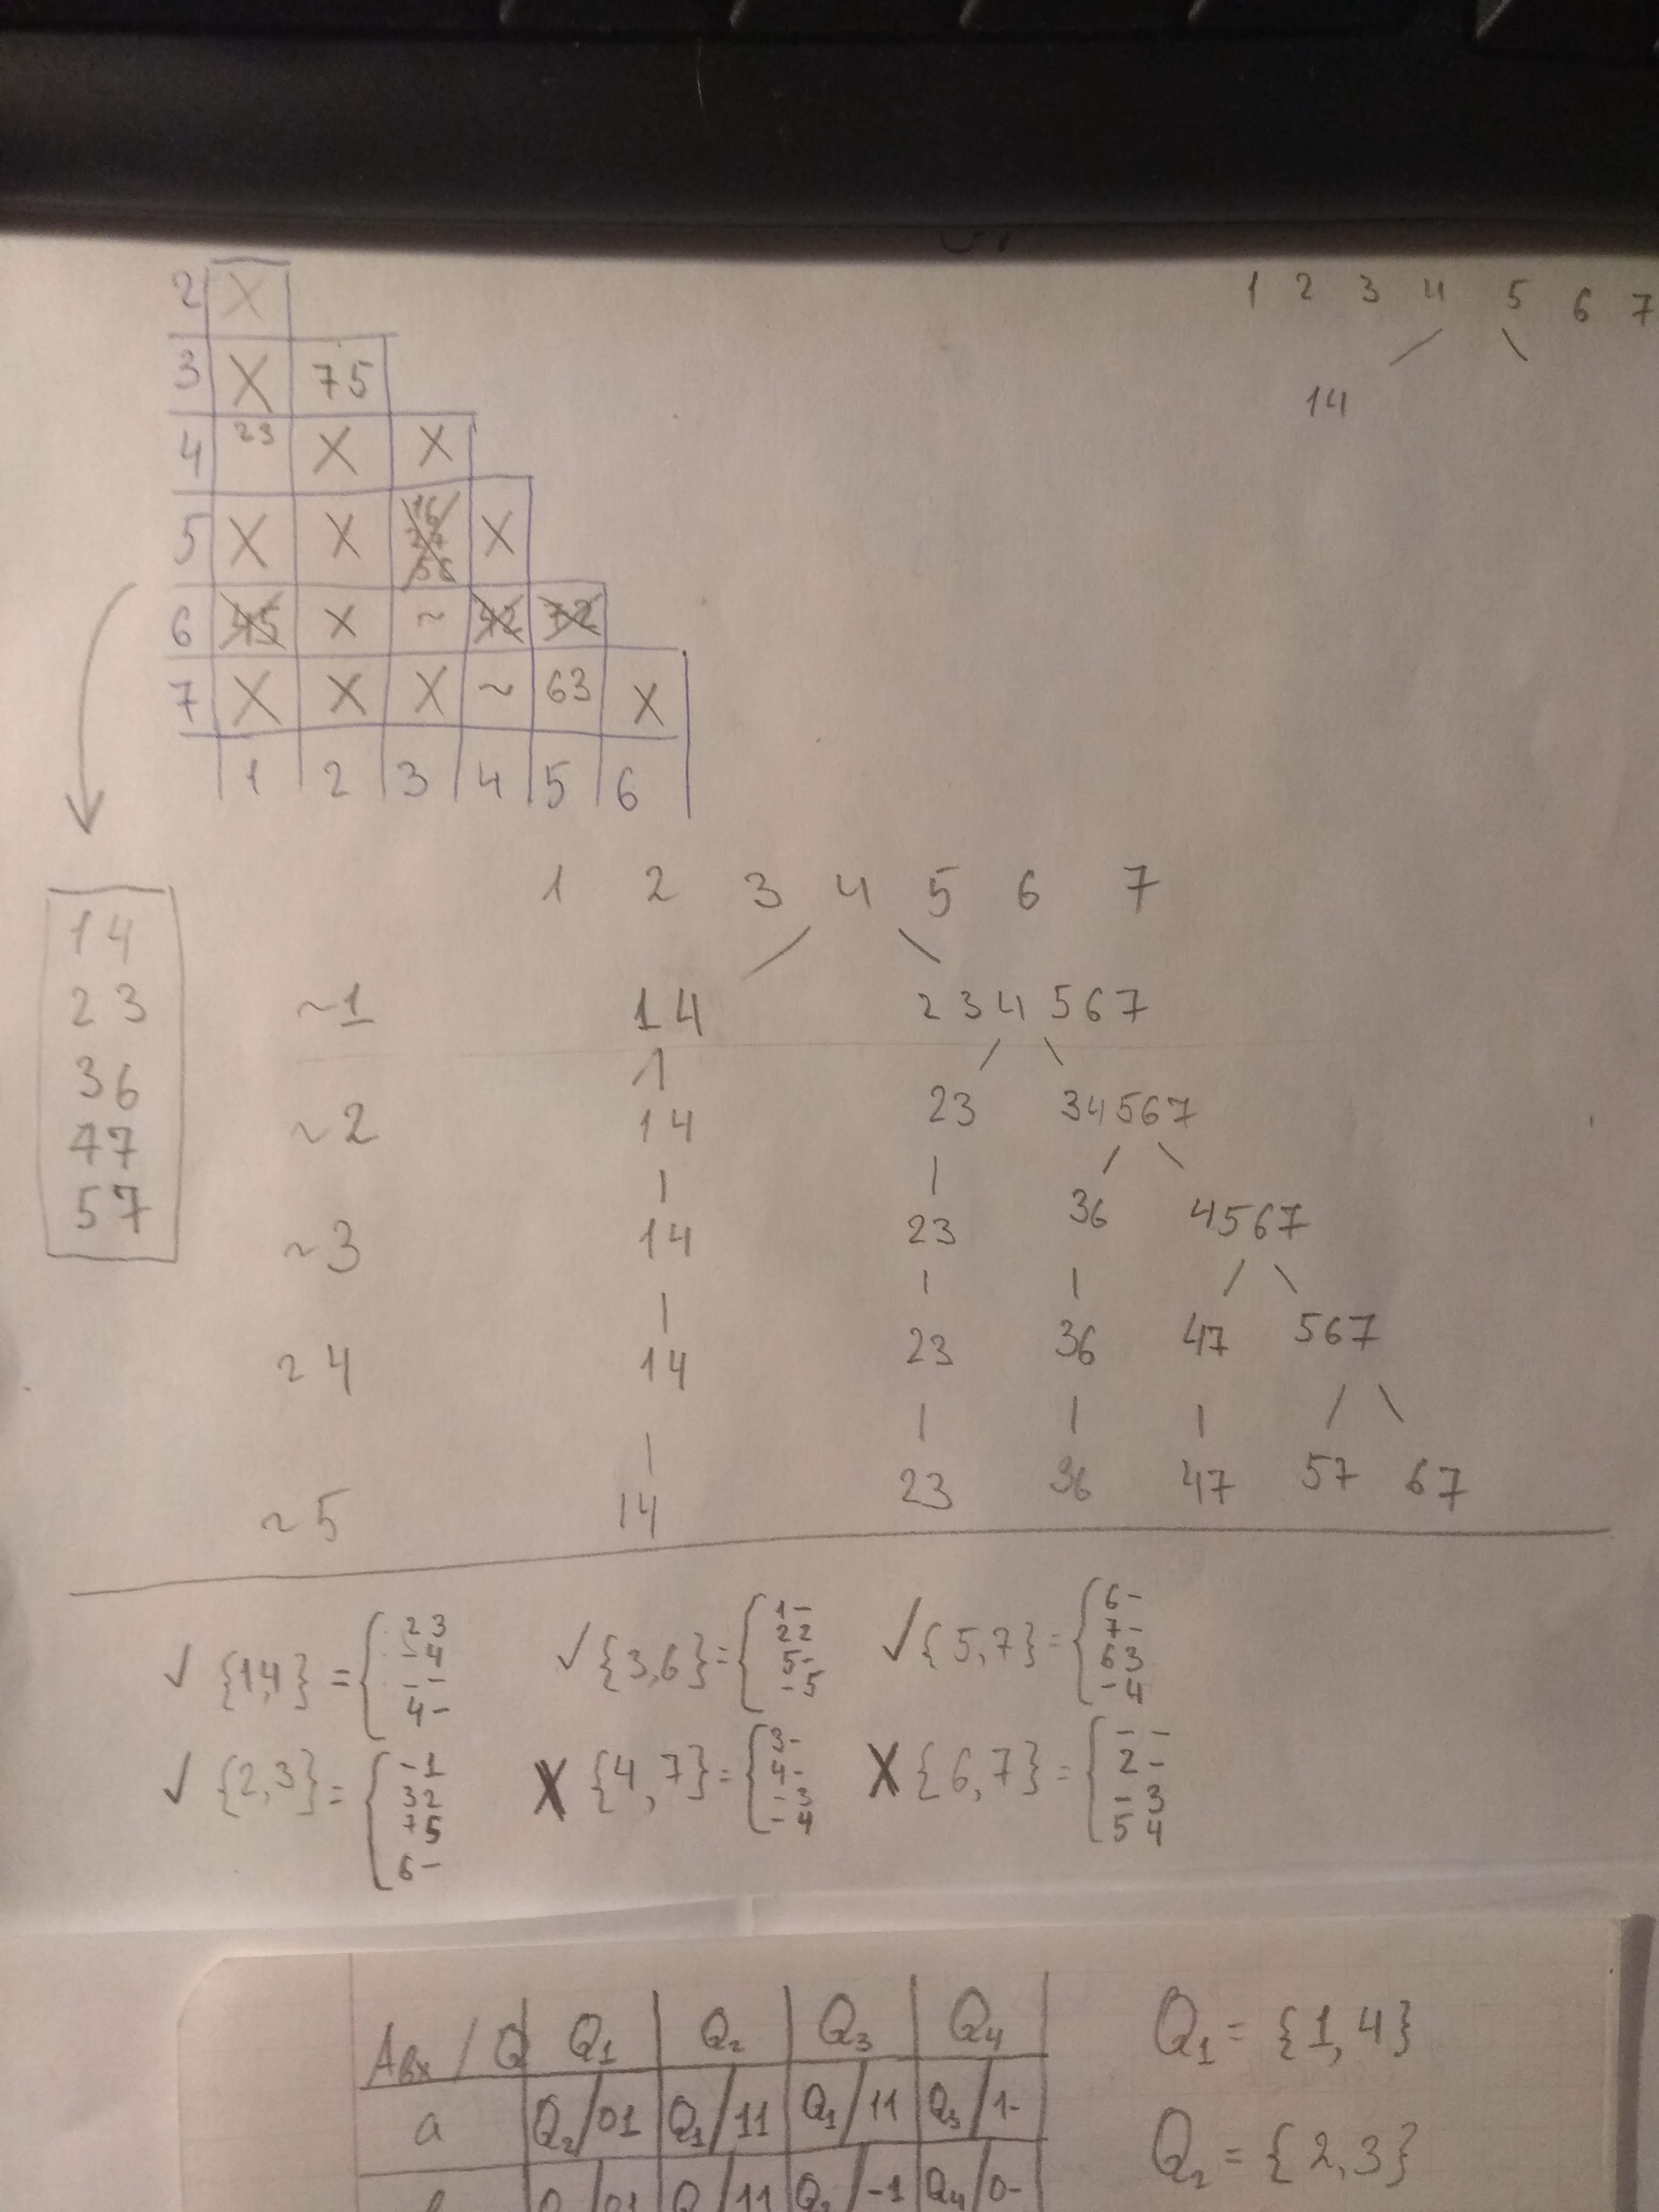 1 2 3 4 5 6 7
14
2 X
3 X 75
4 23 X X
5 X X X
6 45 X ~ 42 72
7 X X X ~ 63 X
1 2 3 4 5 6
14
23
36
47
57
1 2 3 4 5 6 7
~1 14 234567
~2 14 23 34567
~3 14 23 36 4567
~4 14 23 36 47 567
~5 14 23 36 47 57 67
✓ {1,4} = { 23
-4
--
4-
✓ {3,6} = { 1-
22
5-
-5
✓ {5,7} = { 6-
7-
63
-4
✓ {2,3} = { -1
32
75
6-
X {4,7} = { 3-
4-
-3
-4
X {6,7} = { --
2-
-3
54
Aвх / Q Q₁ Q₂ Q₃ Q₄
a Q₂/01 Q₁/11 Q₁/11 Q₃/1-
Q₁ = {1,4}
Q₂ = {2,3}
/01 /11 /-1 Q₄/0-